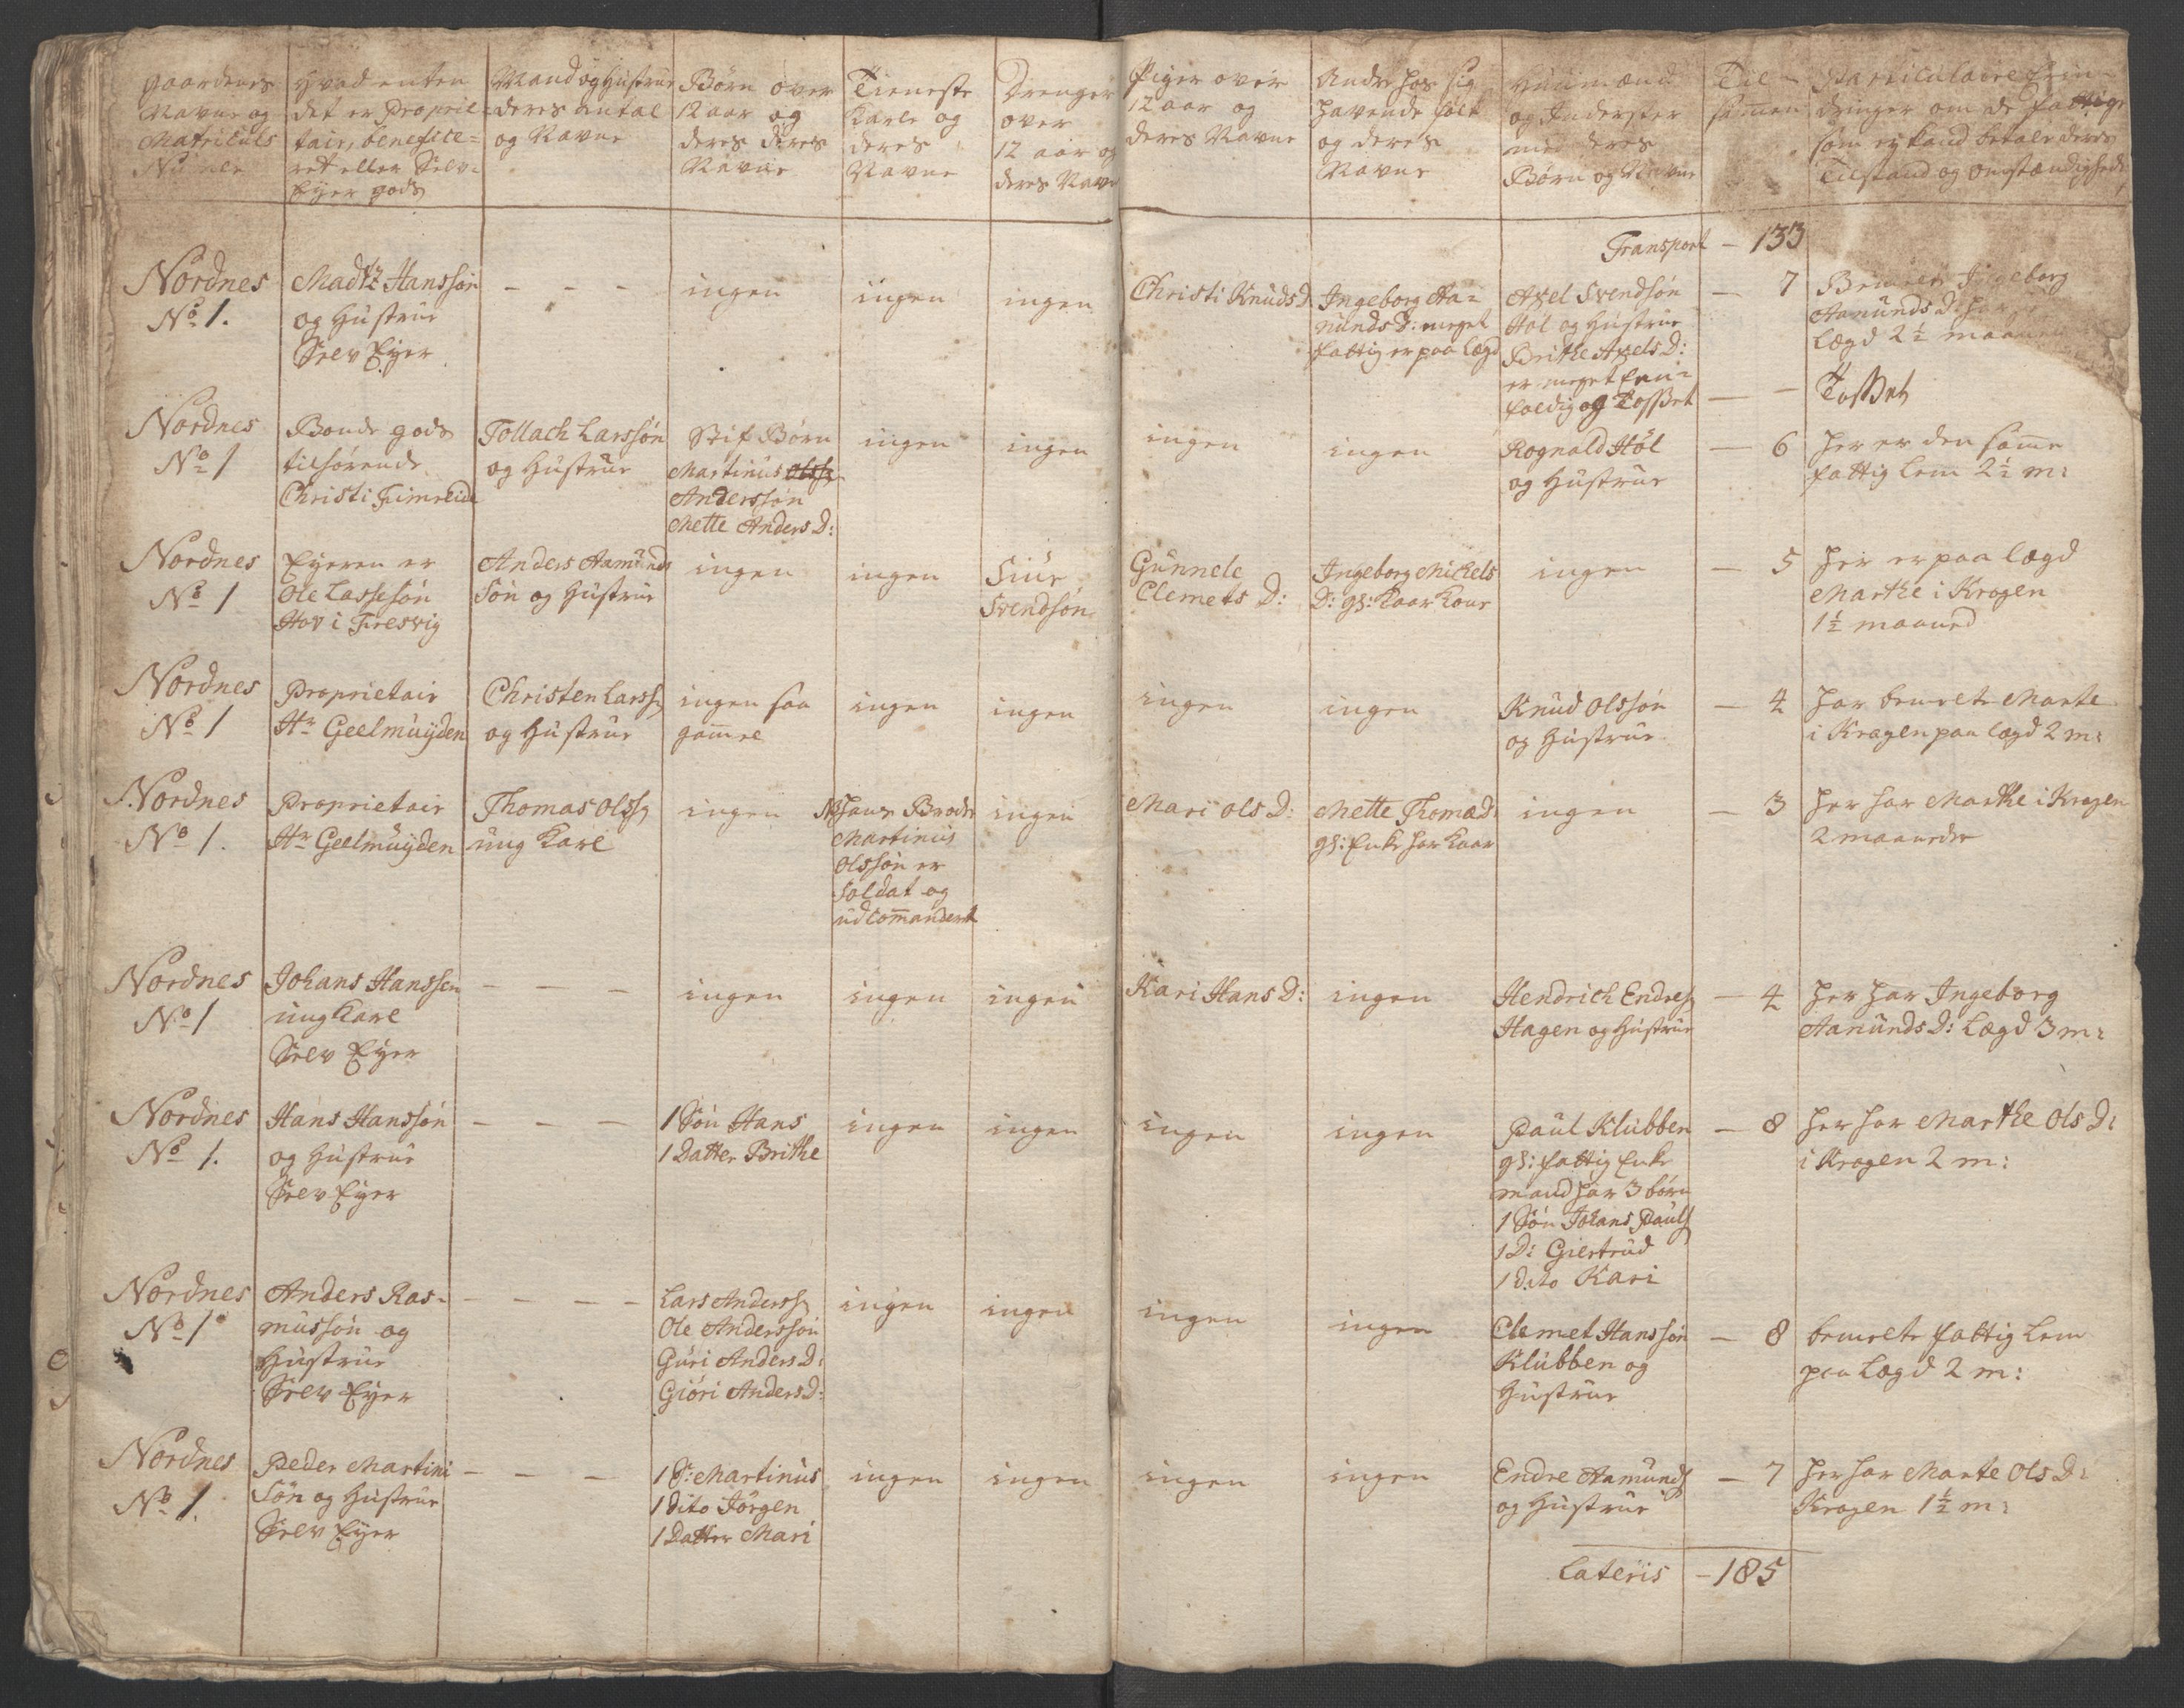 Gaardenes Navne og Matriculs No
Hvad enten det er Proprietair, beneficeret eller Selv Eyer gods
Mand og Hustrue deres antal og Navne
Børn over 12 aar og deres deres Navne
Tieneste Karle og deres Navne
Drenger over 12 aar og deres Navne
Piger over 12 aar og deres Navne
Andre hos sig havende folk og deres Navne
Huusmænd og Inderster med deres Børn og Navne
Til sammen
Particulaire Erindringer om de fattige som ey kand betale deres Tilstand og Omstændighed
Transport – 133
Nordnes
No 1.
Madtz Hanssøn
og Hustrue
Selv Eyer
– – –
ingen
ingen
ingen
Christi Knuds D:
Ingeborg Aa=
munds D: meget
fattig er paa Lægd
Axel Svendsøn
Hol og Hustrue
Brithe Axels D:
er meget een=
foldig og Tosset
– 7
Ingeborg
Aamunds D: har
Lægd 2½ maaned
– – Tosset
Nordnes
No 1
Bonde gods
tilhørende
Christi Fimreide
Tollach Larssøn
og Hustrue
Stif Børn
Martinus Olss
Anderssøn
Mette Anders D:
ingen
ingen
ingen
ingen
Rognald Hól
og Hustrue
– 6
her er den samme
fattig Lem 2½ m:
Nordnes
No 1
Eyeren er
Ole Lassesøn
Hov i Fresvig
Anders Aamunds
Søn og Hustrue
ingen
ingen
Siur
Svendsøn
Gunnele
Clemets D:
Ingeborg Michels
D: gl: Kaar Kone
ingen
– 5
her er paa Lægd
Marthe i Krogen
1½ maaned
Nordnes
No 1
Proprietair
Hr Geelmuyden
Christen Larss
og Hustrue
ingen saa
gamle
ingen
ingen
ingen
ingen
Knud Olssøn
og Hustrue
– 4
har bemelte Marte
i Krogen paa Lægd 2 m:
Nordnes
No 1.
Proprietair
Hr Geelmuyden
Thomas Olss
ung Karl
ingen
NB hans Broder
Martinus
Olssøn er
Soldat og
udcommandert
ingen
Mari Ols D:
Mette Thomæ D:
gl: Enke har Kaar
ingen
– 3
her har Marthe i Krogen
2 maaneder
Nordnes
No 1
Johans Hanssen
ung Karl
Selv Eyer
– – –
ingen
ingen
ingen
Kari Hans D:
ingen
Hendrich Endres
Hagen og Hustrue
– 4
her har Ingeborg
Aamunds D: Lægd 3 m:
Nordnes
No 1.
Hans Hanssøn
og Hustrue
Selv Eyer
– – –
1 Søn Hans
1 Datter Brithe
ingen
ingen
ingen
ingen
Paul Klubben
gl: fattig Enke
mand har 3 børn
1 Søn Johans Pauls
1 D: Giertrud
1 Dito Kari
– 8
her har Marthe Ols D:
i Krogen 2 m:
Nordnes
No 1
Anders Ras=
mussøn og
Hustrue
Selv Eyer
– – – –
Lars Anderss
Ole Anderssøn
Guri Anders D:
Giøri Anders D:
ingen
ingen
ingen
ingen
Clemet Hanssøn
Klubben og
Hustrue
– 8
bemelte fattig Lem
paa Lægd 2 m:
Nordnes
No 1.
Peder Martini
Søn og Hustrue
Selv Eyer
– – –
1 S: Martinus
1 Dito Jørgen
1 Datter Mari
ingen
ingen
ingen
ingen
Endre Aamunds
og Hustrue
– 7
her har Marte Ols D:
Krogen 1½ m:
Lateris – 185